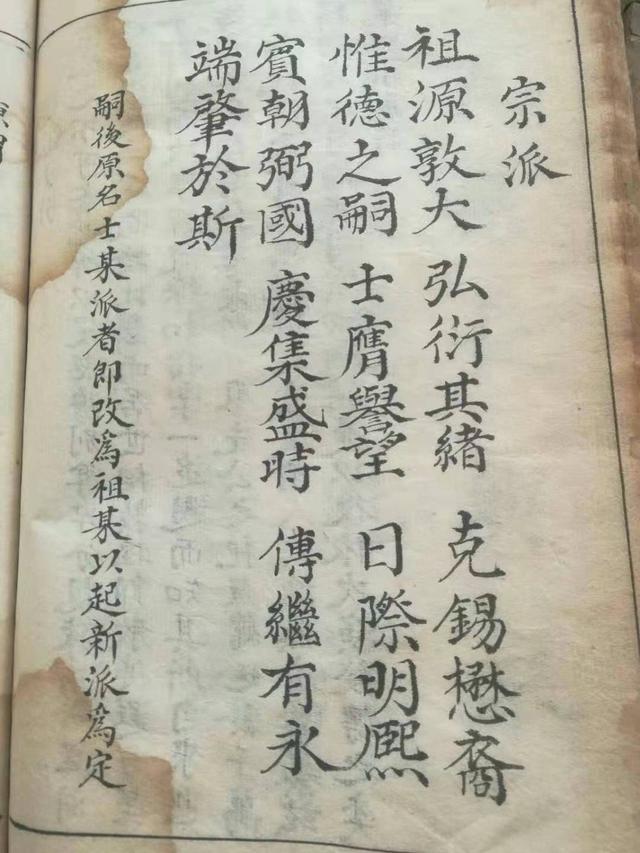 宗派
祖源敦大 弘衍其緒 克錫懋裔
惟德之嗣 士膺譽望 日際明熙
賓朝弼國 慶集盛時 傳繼有永
端肇於斯
嗣後原名士某派者即改爲祖某以起新派爲定